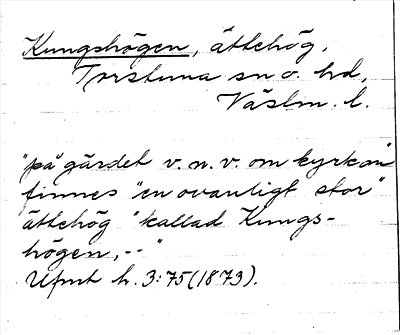 Kungshögen, ättehög,
Torstuna sn o. hd,
Västm. l.
"på gärdet v. n. v. om kyrkan"
finnes "en ovanligt stor"
ättehög "kallad Kungs-
högen, --"
Ufmt h. 3:75 (1873).